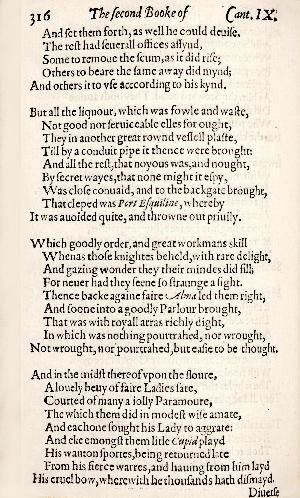 316 The second Booke of Cant. IX.
And set them forth, as well he could deuise.
The rest had seuerall offices assynd,
Some to remoue the scum, as it did rise;
Others to beare the same away did mynd;
And others it to vse acccording to his kynd.
But all the liquour, which was fowle and waste,
Not good nor seruiceable elles for ought,
They in another great rownd vessell plaste,
Till by a conduit pipe it thence were brought:
And all the rest, that noyous was, and nought,
By secret wayes, that none might it espy,
Was close conuaid, and to the backgate brought,
That cleped was Port Esquiline, whereby
It was auoided quite, and throwne out priuily.
Which goodly order, and great workmans skill
Whenas those knightes beheld, with rare delight,
And gazing wonder they their mindes did fill;
For neuer had they seene so straunge a sight.
Thence backe againe faire Alma led them right,
And soone into a goodly Parlour brought,
That was with royall arras richly dight,
In which was nothing pourtrahed, nor wrought,
Not wrought, nor pourtrahed, but easie to be thought.
And in the midst thereof vpon the floure,
A louely beuy of faire Ladies sate,
Courted of many a iolly Paramoure,
The which them did in modest wise amate,
And eachone sought his Lady to aggrate:
And eke emongst them litle Cupid playd
His wanton sportes, being retourned late
From his fierce warres, and hauing from him layd
His cruel bow, wherewith he thousands hath dismayd.
Diuerse